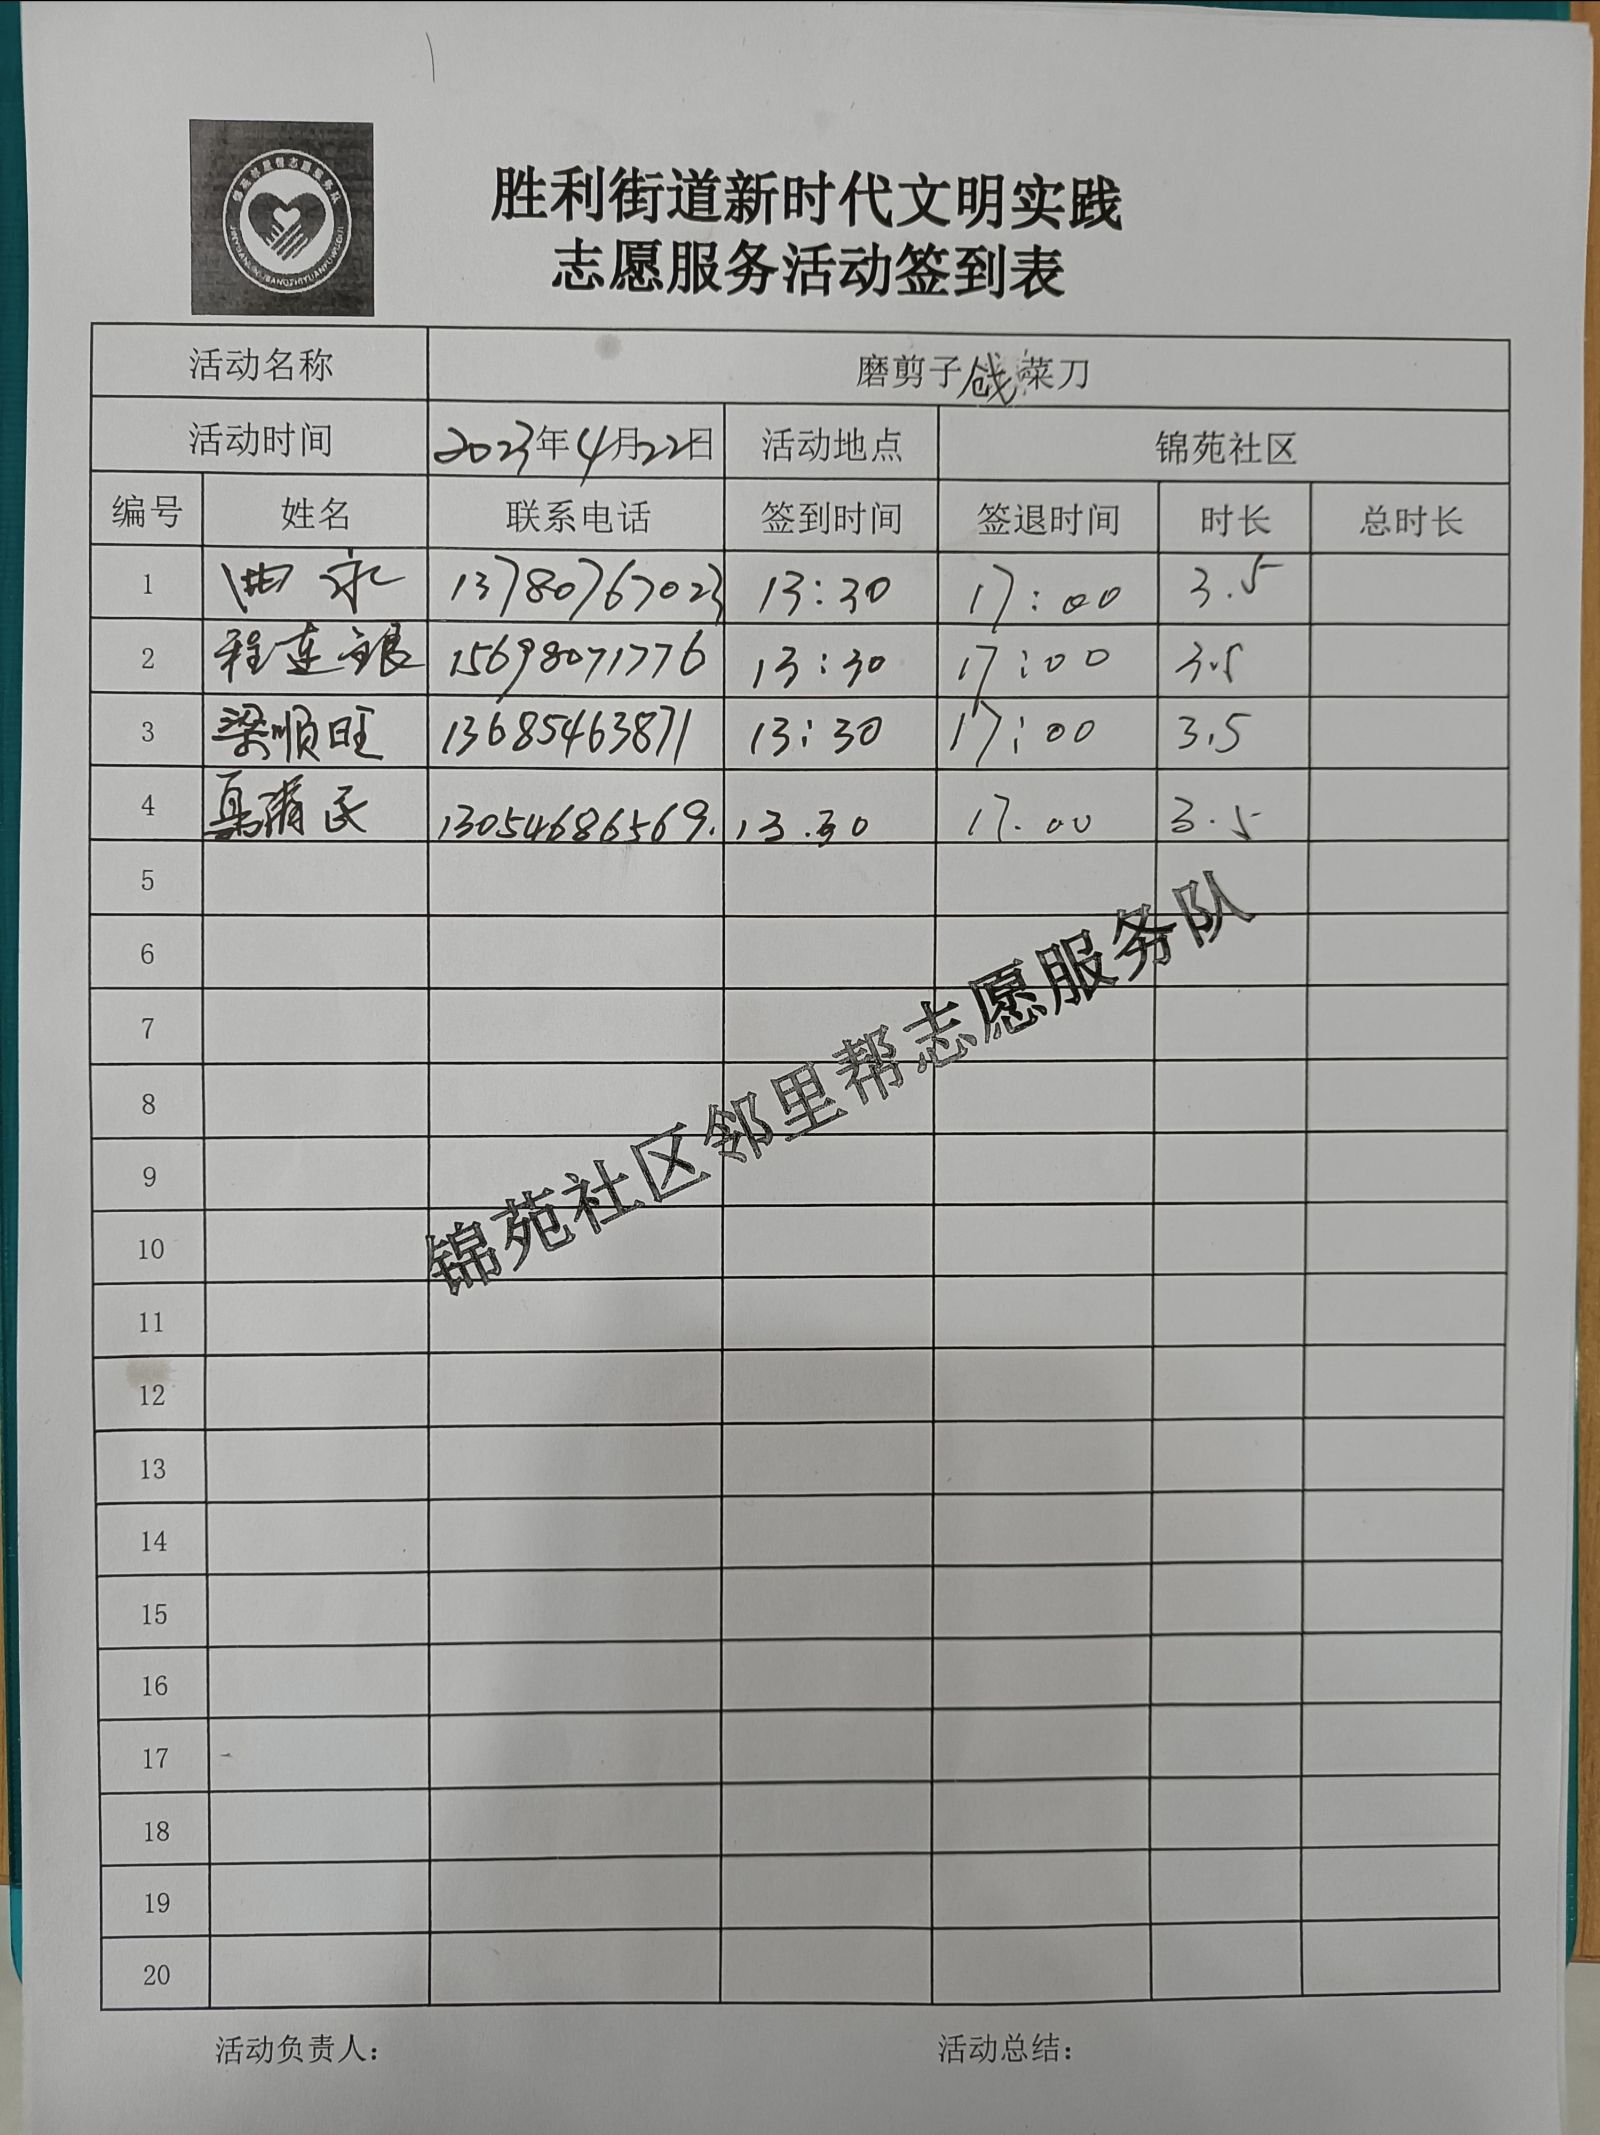 胜利街道新时代文明实践
志愿服务活动签到表
活动名称 磨剪子戗菜刀
活动时间 2023年4月22日 活动地点 锦苑社区
编号 姓名 联系电话 签到时间 签退时间 时长 总时长
1 永 13780767023 13:30 17:00 3.5
2 程连银 15698071776 13:30 17:00 3.5
3 梁顺旺 13685463871 13:30 17:00 3.5
4 清民 13054686569. 13.30 17.00 3.5
5
6
7
8
9
10
11
12
13
14
15
16
17
18
19
20
锦苑社区邻里帮志愿服务队
活动负责人： 活动总结：